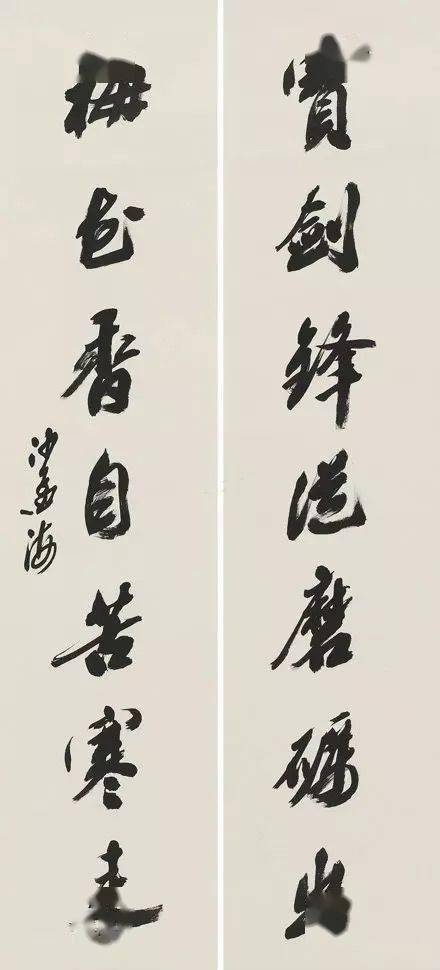 寳劍鋒從磨礪出
梅花香自苦寒來
沙孟海